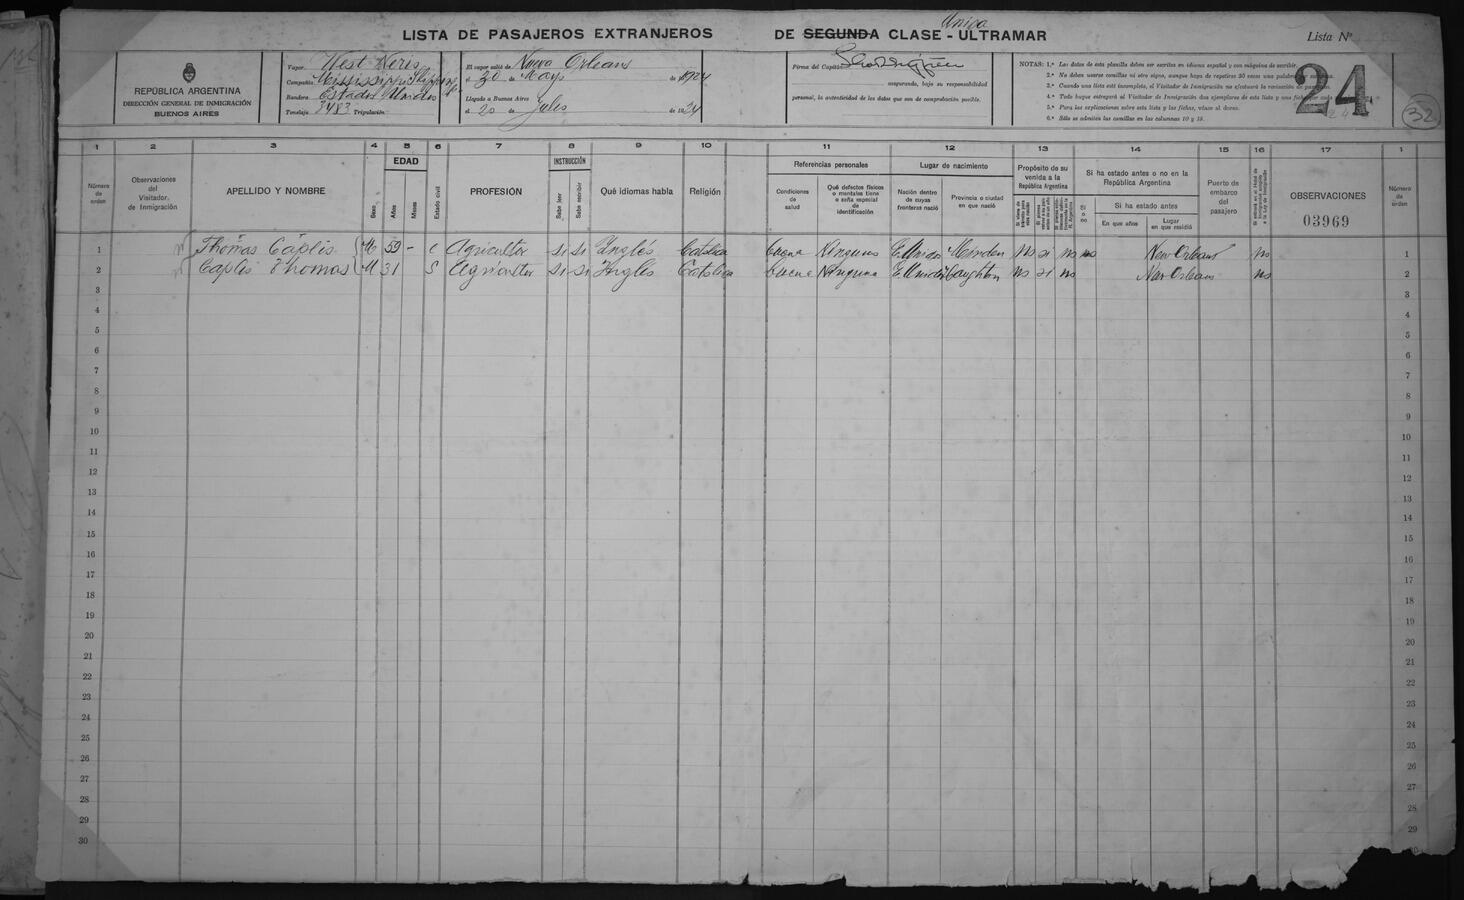 LISTA DE PASAJEROS EXTRANJEROS DE SEGUNDA CLASE - ULTRAMAR
Unica
Lista Nº
REPÚBLICA ARGENTINA
DIRECCIÓN GENERAL DE INMIGRACIÓN
BUENOS AIRES
Vapor West Neris
Compañía Mississippi Shipping
Bandera Estados Unidos
Tonelaje 3483 Tripulación
El vapor salió de Nueva Orleans
el 30 de Mayo de 1924
Llegado a Buenos Aires
el 20 de Julio de 1924
Firma del Capitán
asegurando, bajo su responsabilidad
personal, la autenticidad de los datos que son de comprobación posible.
NOTAS: 1.ª Los datos de esta planilla deben ser escritos en idioma español y con máquina de escribir.
2.ª No deben usarse comillas ni otro signo, aunque haya de repetirse 30 veces una palabra
3.ª Cuando una lista esté incompleta, el Visitador de Inmigración no efectuará la revisación de
4.ª Todo buque entregará al Visitador de Inmigración dos ejemplares de esta lista y una ficha por cada
5.ª Para las explicaciones sobre esta lista y las fichas, véase al dorso.
6.ª Sólo se admiten las comillas en las columnas 10 y 15.
24
32
1 2 3 4 5 6 7 8 9 10 11 12 13 14 15 16 17 1
Número de orden
Observaciones del Visitador de Inmigración
APELLIDO Y NOMBRE
Sexo
EDAD
Años
Meses
Estado civil
PROFESIÓN
INSTRUCCIÓN
Sabe leer
Sabe escribir
Qué idiomas habla
Religión
Referencias personales
Condiciones de salud
Qué defectos físicos o mentales tiene o seña especial de identificación
Lugar de nacimiento
Nación dentro de cuyas fronteras nació
Provincia o ciudad en que nació
Propósito de su venida a la República Argentina
Si ha estado antes o no en la República Argentina
No o Sí
Si ha estado antes
En que años
Lugar en que residió
Puerto de embarco del pasajero
OBSERVACIONES
03969
Número de orden
1 Thomas Caplis M 59 - C Agricultor si si Inglés Catolica Buena Ninguna E. Unidos Minden No si no no New Orleans no 1
2 Caplis Thomas M 31 S Agricultor si si Inglés Catolica Buena Ninguna E. Unidos Haughton no si no New Orleans no 2
3 3
4 4
5 5
6 6
7 7
8 8
9 9
10 10
11 11
12 12
13 13
14 14
15 15
16 16
17 17
18 18
19 19
20 20
21 21
22 22
23 23
24 24
25 25
26 26
27 27
28 28
29 29
30